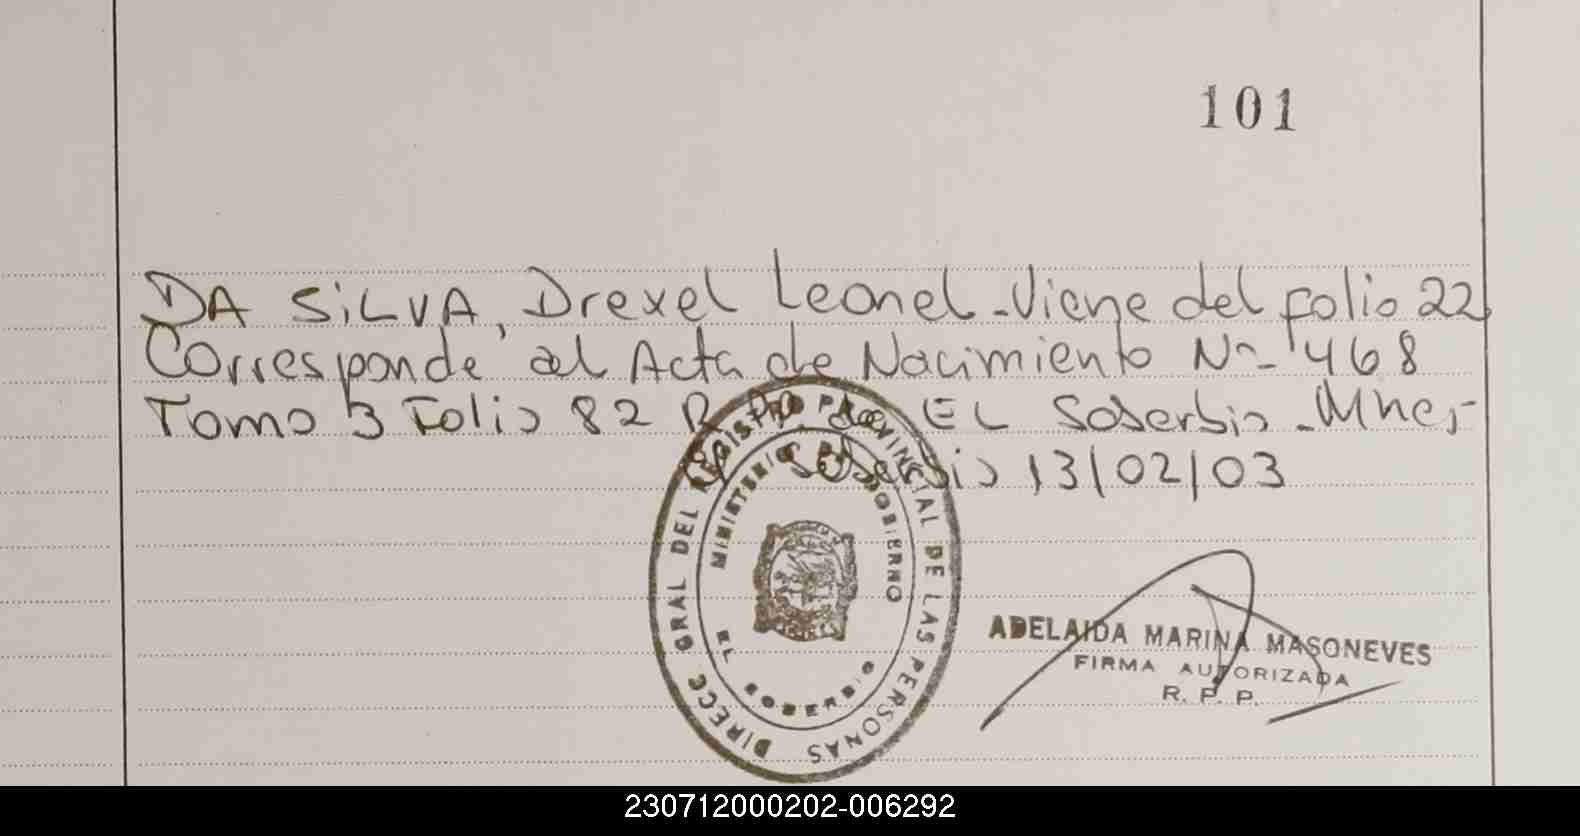 101
DA SILVA, Drexel Leonel - Viene del folio 22
Corresponde al Acta de Nacimiento Nº - 468
Tomo 3 Folio 82 R.P.P. de EL Soberbio - Mnes -
El Soberbio 13/02/03
DIRECC GRAL DEL REGISTRO PROVINCIAL DE LAS PERSONAS
MINISTERIO DE GOBIERNO
EL SOBERBIO
ADELAIDA MARINA MASONEVES
FIRMA AUTORIZADA
R. P. P.
230712000202-006292